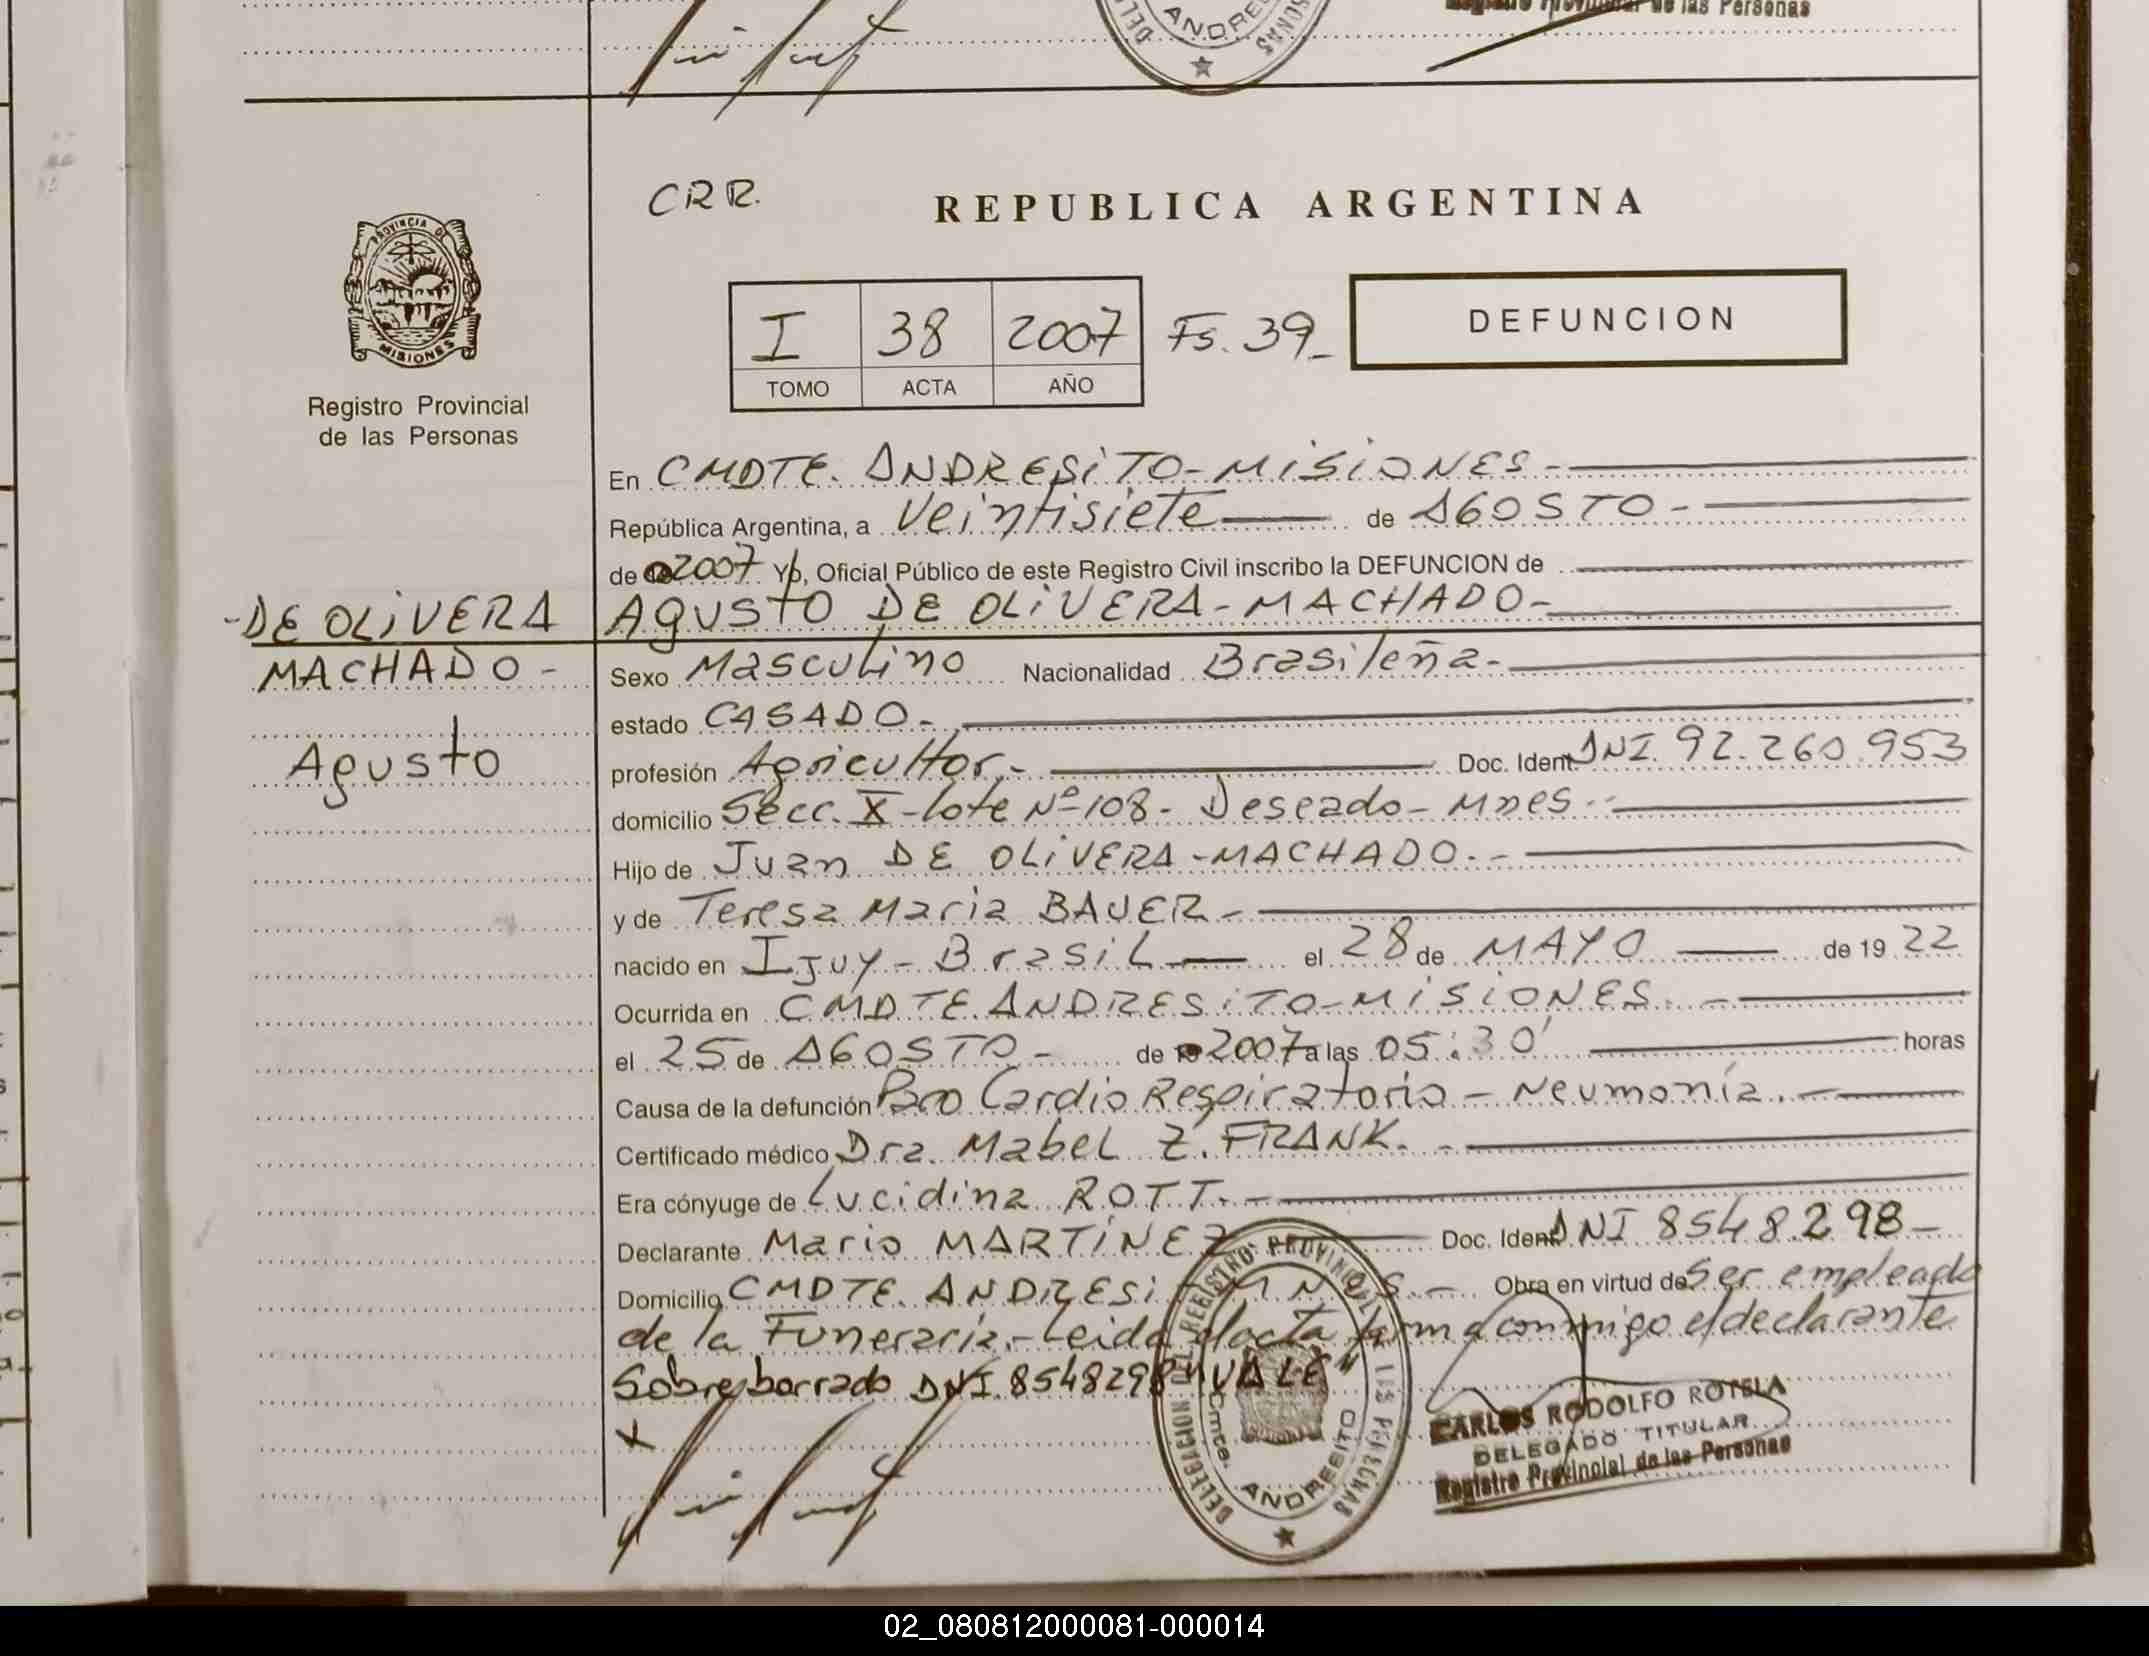 Registro Provincial de las Personas
ANDRES
CRR.
REPUBLICA ARGENTINA
PROVINCIA DE
MISIONES
Registro Provincial
de las Personas
I 38 2007 Fs. 39_
TOMO ACTA AÑO
DEFUNCION
En CMDTE. ANDRESiTO-MiSiONES.-
República Argentina, a Veintisiete de AGOSTO-
de 2007 Yo, Oficial Público de este Registro Civil inscribo la DEFUNCION de
-DE OLiVERA
AgusTO DE OLiVERA-MACHADO-
MACHADO-
Sexo Masculino Nacionalidad Brasileña-
estado CASADO.-
Agusto
profesión Agricultor.- Doc. Ident. DNI. 92.260.953
domicilio Secc. X-lote Nº108- Deseado- Mnes.-
Hijo de Juan DE OLiVERA-MACHADO.-
y de Teresa Maria BAUER-
nacido en Ijuy-Brasil el 28 de MAYO de 1922
Ocurrida en CMDTE ANDRESiTO-MiSiONES.-
el 25 de AGOSTO- de 2007 a las 05:30' horas
Causa de la defunción Paro Cardio Respiratorio-Neumonía.-
Certificado médico Dra. Mabel Z. FRANK.-
Era cónyuge de Lucidina ROTT.-
Declarante Mario MARTíNEZ Doc. Ident. DNI 8548298-
Domicilio CMDTE. ANDRESi M N E S.- Obra en virtud de Ser empleado
de la Funeraria.-Leida el acta firma conmigo el declarante
Sobreborrado DNI.8548298 "VALE"
x
DELEGACION DEL REGISTRO PROVINCIAL DE LAS PERSONAS
Cmte. ANDRESITO
CARLOS RODOLFO ROTELA
DELEGADO TITULAR
Registro Provincial de las Personas
02_080812000081-000014